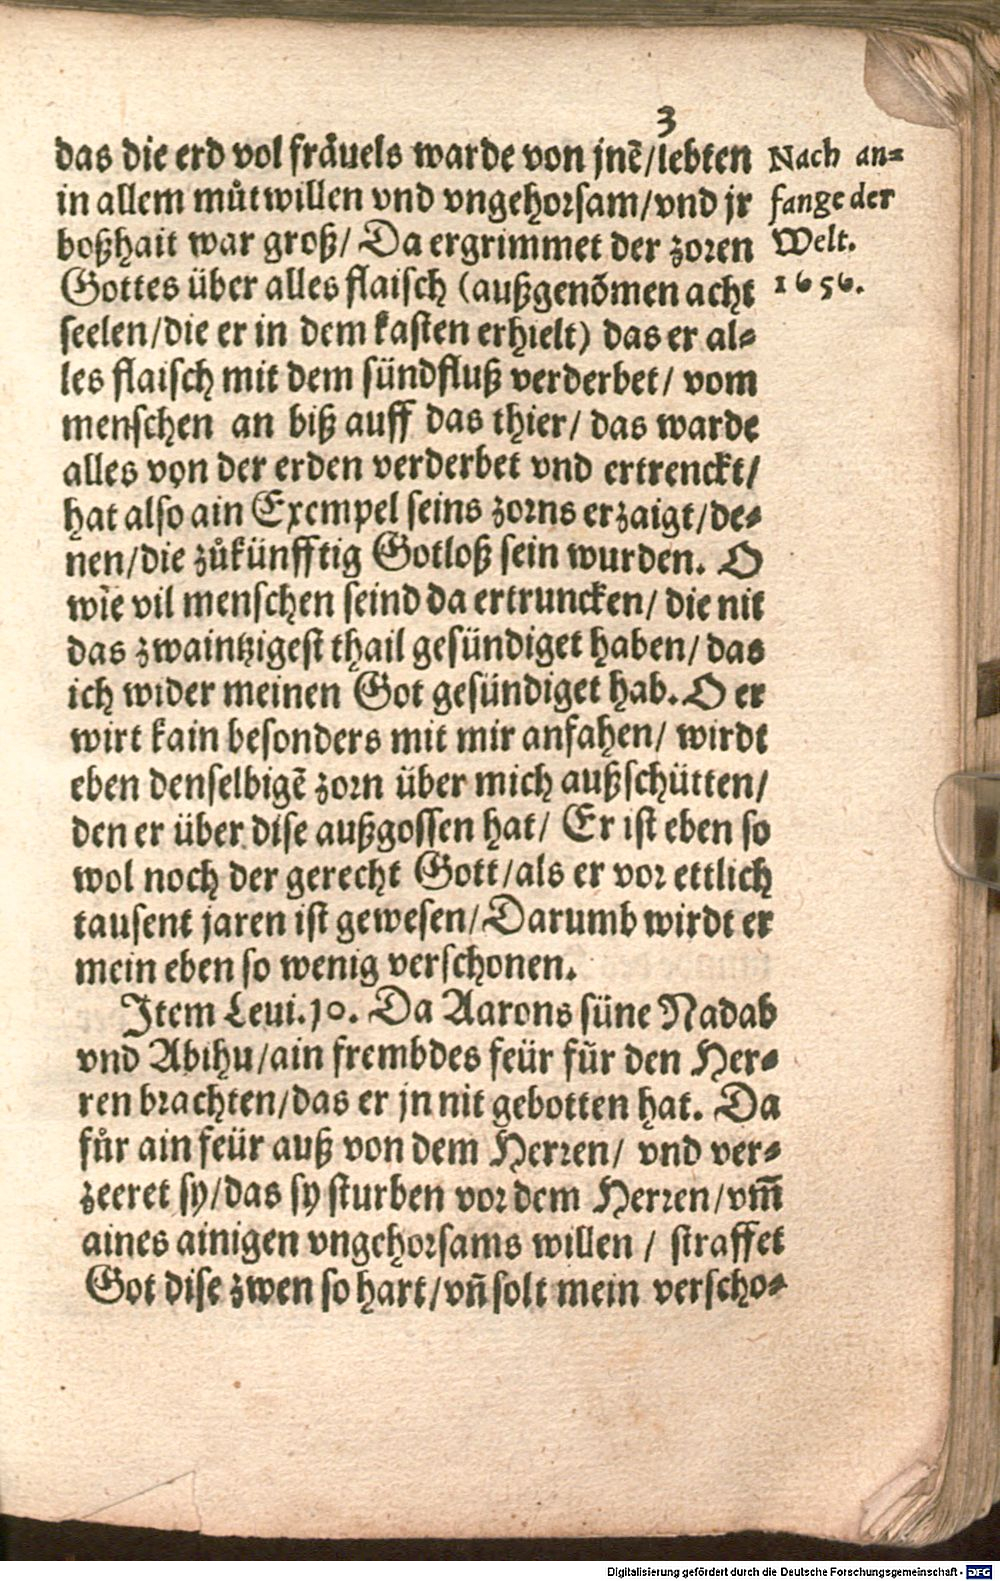 3
das die erd vol fråuels warde von jnẽ/lebten
in allem můtwillen vnd vngehorsam/vnd jr
boßhait war groß/ Da ergrimmet der zoren
Gottes über alles flaisch (außgenõmen acht
seelen/die er in dem kasten erhielt) das er al⸗
les flaisch mit dem sündfluß verderbet/ vom
menschen an biß auff das thier/ das warde
alles von der erden verderbet vnd ertrenckt/
hat also ain Exempel seins zorns erzaigt/de⸗
nen/die zůkünfftig Gotloß sein wurden. O
wie vil menschen seind da ertruncken/ die nit
das zwaintzigest thail gesündiget haben/ das
ich wider meinen Got gesündiget hab. O er
wirt kain besonders mit mir anfahen/ wirdt
eben denselbigẽ zorn über mich außschütten/
den er über dise außgossen hat/ Er ist eben so
wol noch der gerecht Gott/als er vor ettlich
tausent jaren ist gewesen/Darumb wirdt er
mein eben so wenig verschonen.
Item Leui.10. Da Aarons süne Nadab
vnd Abihu/ain frembdes feür für den Her⸗
ren brachten/das er jn nit gebotten hat. Da
fůr ain feür auß von dem Herren/ vnd ver⸗
zeeret sy/das sy sturben vor dem Herren/vm̃
aines ainigen vngehorsams willen / straffet
Got dise zwen so hart/vñ solt mein verscho⸗
Nach an⸗
fange der
Welt.
1656.
Digitalisierung gefördert durch die Deutsche Forschungsgemeinschaft - DFG